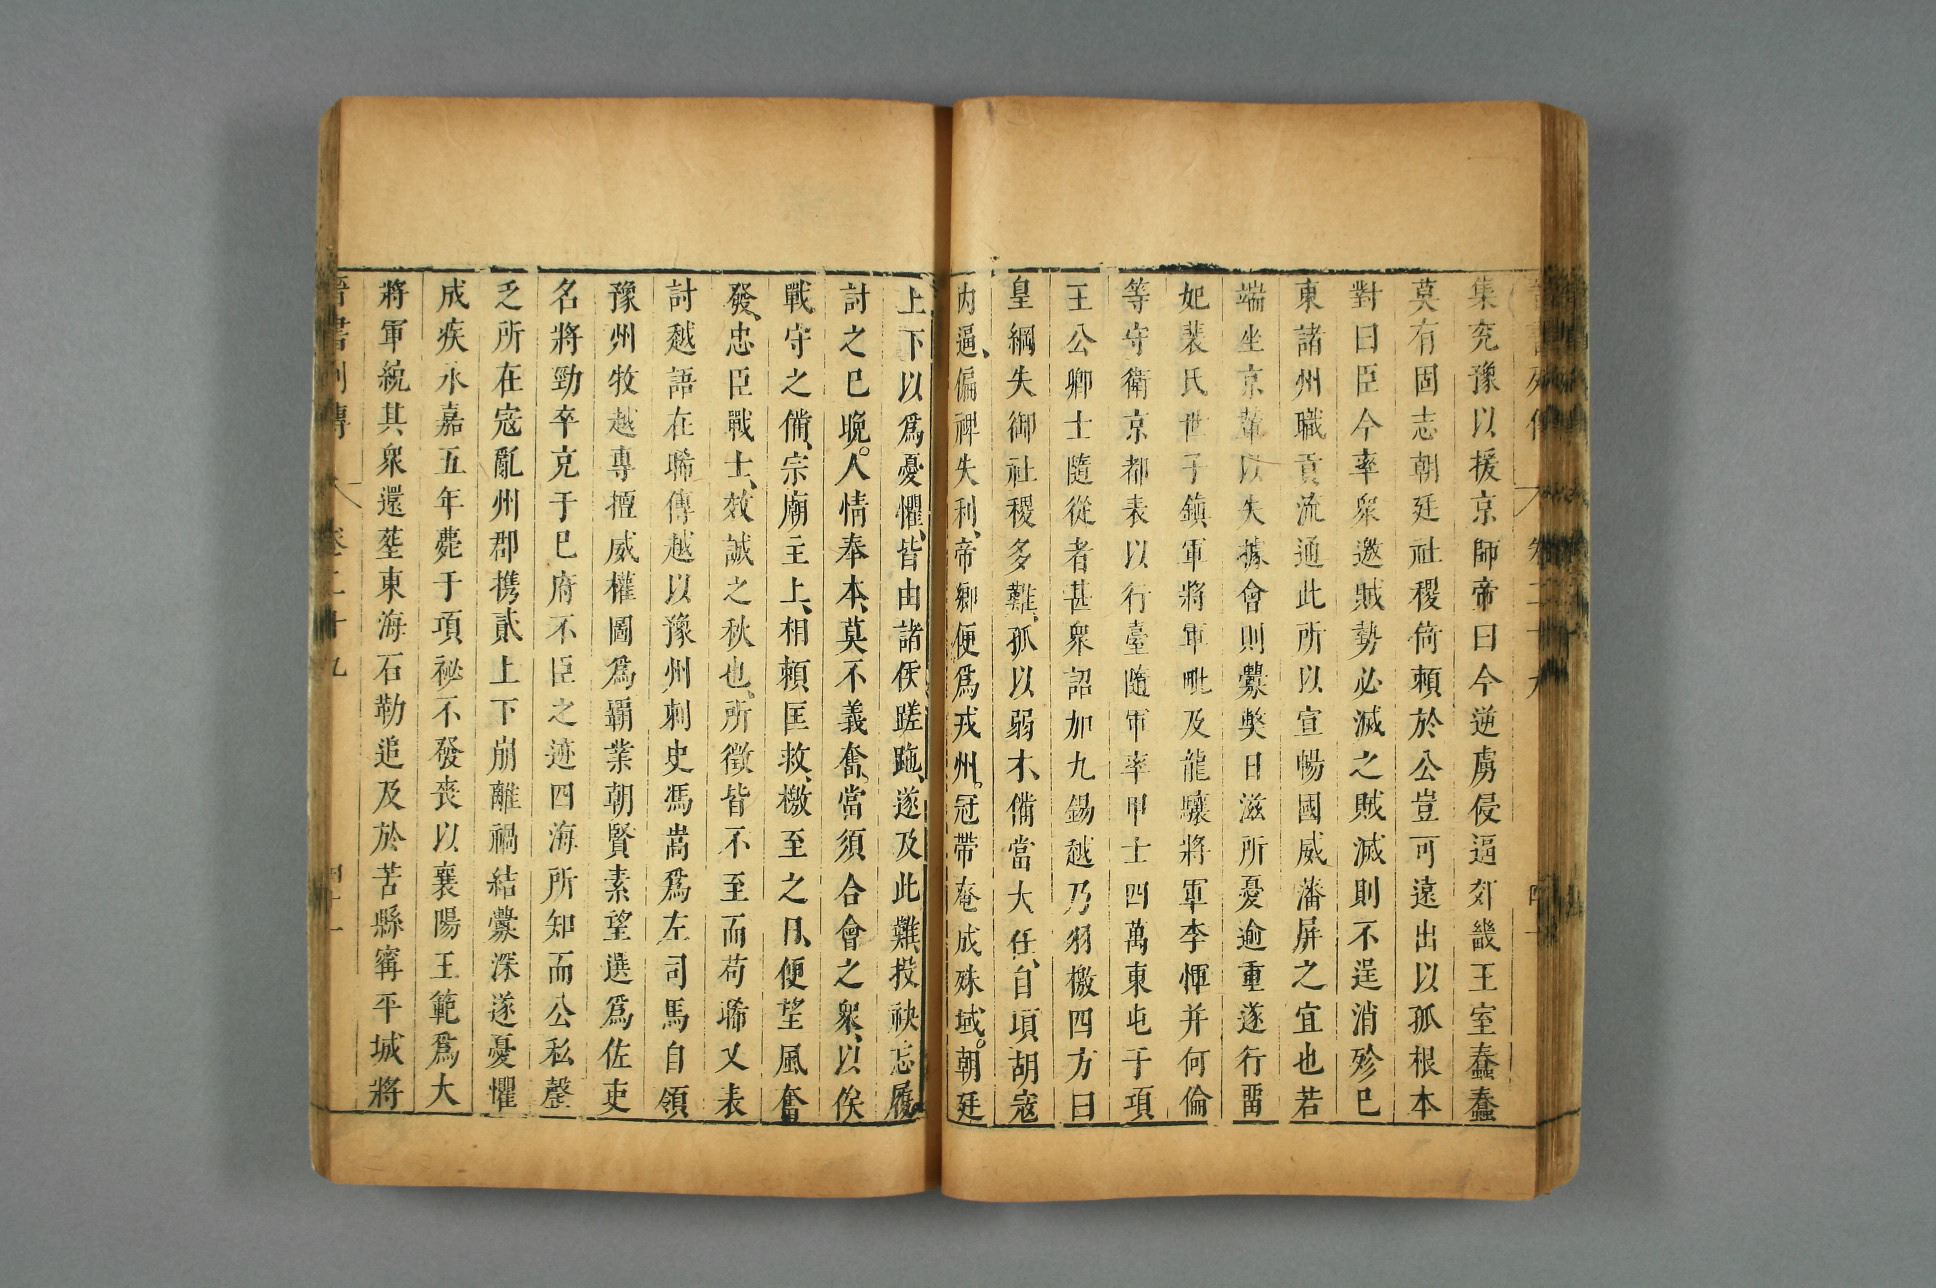 集兖豫以援京師帝曰今逆虜侵逼郊畿王室蠢蠢
莫有固志朝廷社稷倚賴於公豈可遠出以孤根本
對曰臣今率衆邀賊勢必滅之賊滅則不逞消殄已
東諸州職貢流通此所以宣暢國威藩屏之宜也若
端坐京輦以失據會則釁弊日滋所憂逾重遂行留
妃裴氏世子鎮軍將軍毗及龍驤將軍李惲并何倫
等守衛京都表以行臺隨軍率甲士四萬東屯于項
王公卿士隨從者甚衆詔加九錫越乃羽檄四方曰
皇綱失御社稷多難、孤以弱才、備當大任、自項胡寇
内逼、偏裨失利、帝鄉便爲戎州。冠帶奄成殊域。朝廷
上下以爲憂懼、皆由諸侯蹉跎、遂及此難、投袂忘履、
討之已晚。人情奉本、莫不義奮、當須合會之衆、以俟
戰守之備、宗廟主上、相賴匡救、檄至之日、便望風奮
發、忠臣戰士、效誠之秋也、所徵皆不至而苟晞又表
討越語在晞傳越以豫州刺史馮嵩爲左司馬自領
豫州牧越專擅威權圖爲霸業朝賢素望選爲佐吏
名將勁卒克于巳府不臣之迹四海所知而公私罄
乏所在寇亂州郡携貳上下崩離禍結釁深遂憂懼
成疾永嘉五年薨于項祕不發喪以襄陽王範爲大
將軍統其衆還塟東海石勒追及於苦縣甯平城將
晉書列傳 卷二十九 四十一